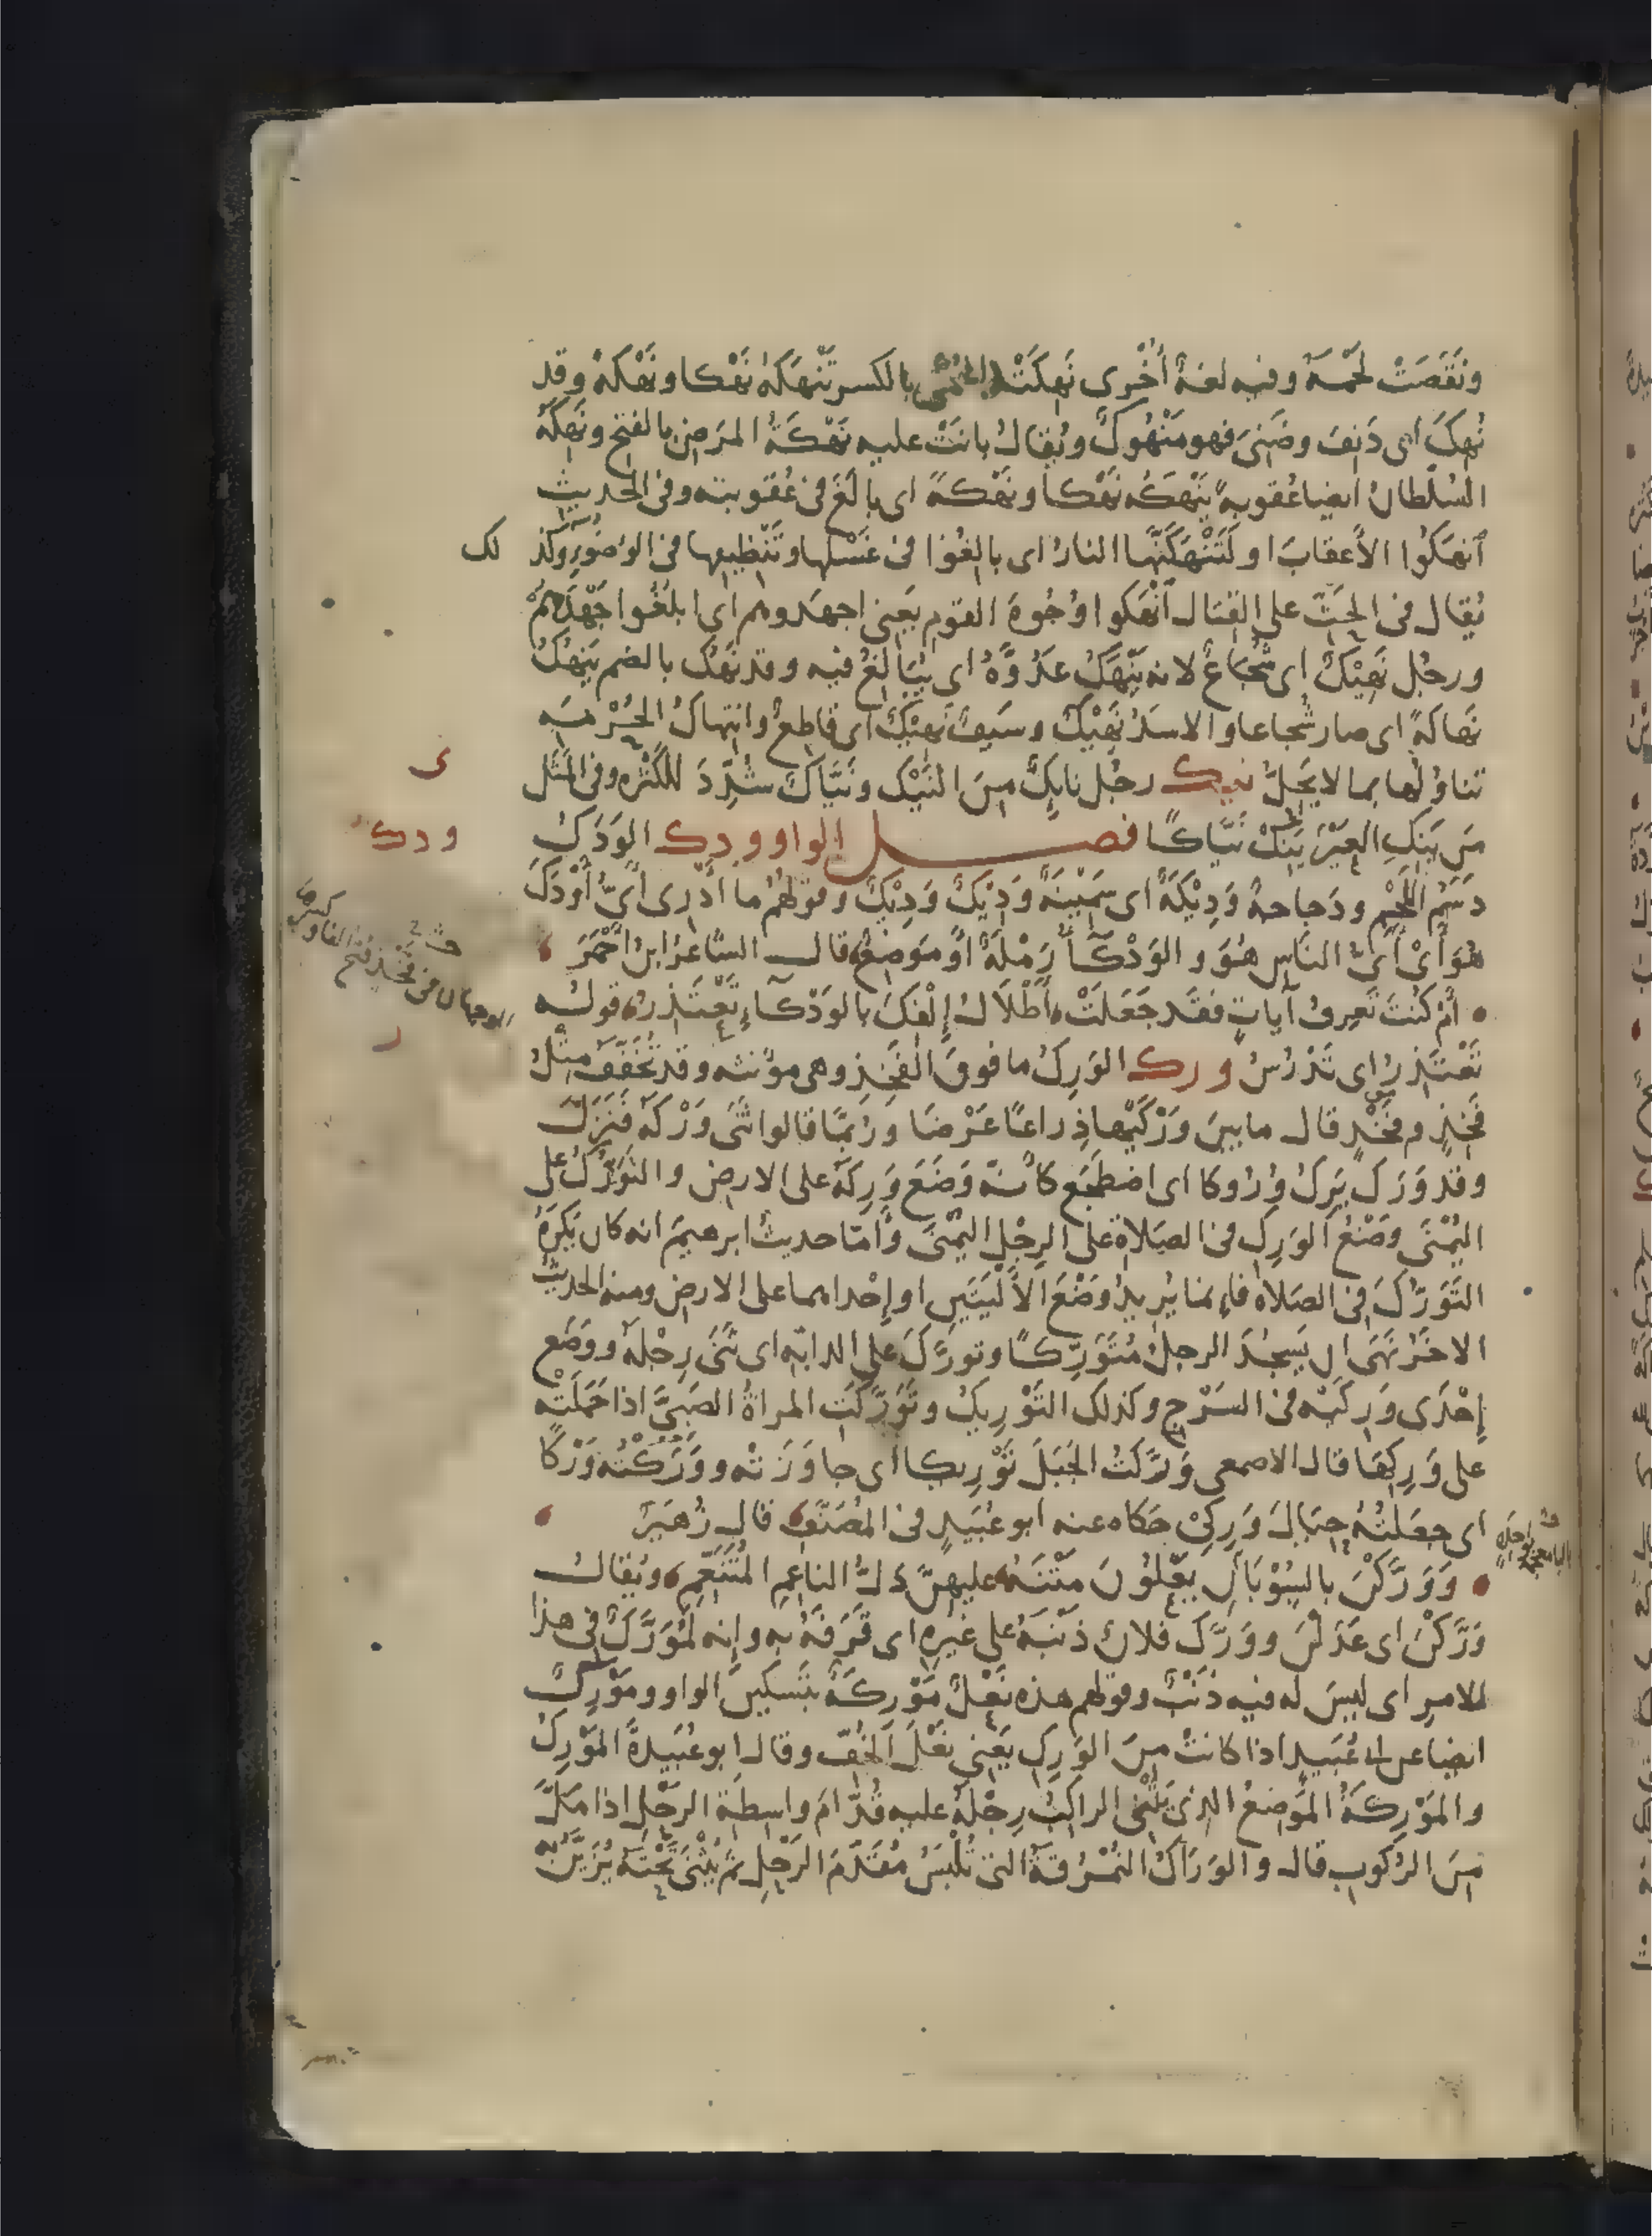 ونَقَصَتْ لَحْمَهُ وفيه لغةٌ أُخْرى نَهِكَتْهُ الحُمّى بالكسر تَنْهَكُهُ نَهْكا ونَهْكةً وقد
نُهِكَ اى دَنِفَ وضَنِىَ فهو مَنْهُوكٌ ويُقالُ بانَتْ عليه نَهْكَةُ المَرَضِ بالفتح ونَهِكَهُ
السُلْطانُ ايضا عُقوبةً يَنْهَكُه نَهْكاً ونَهْكةً اى بالَغَ فى عُقوبته وفى الحديثِ
انهَكُوا الأعقابَ او لَتَنْهَكَنَّها النارُ اى بالِغُوا فى غَسْلِها وتَنْظِيفِها فى الوُضوُءِ وكذ لك
يُقال فى الحَثِّ على القتال أنْهَكوا وُجُوهَ القوم يَعنى اجهَدوهم اى ابلُغُوا جَهْدَهُمْ
ورجُل نَهِيْكٌ اى شُجَاعٌ لانه يَنْهَكُ عَدُوَّهُ اى يُبَالِغُ فيه وقد نَهُك بالضم يَنهُكُ
نَهاكَةً اى صار شُجاعا والاسَدُ نَهِيْكٌ وسَيفٌ نَهِيْكٌ اى قاطِعٌ وانتِهاكُ الحُرْمَة
تناوُلُها بما لا يَحِلُّ نيك رجُل نايِكٌ مِنَ النَيْك ونَيَّاكٌ شُدِّدَ للكَثْرَه وفى المثَل
مَن يَنِكِ العَيْرَ يَنِكْ نَيَّاكًا فصل الواو ودك الوَدَكُ
دَسَمُ اللَحْمِ ودَجاجةٌ وَدِيْكَةٌ اى سَمِيْنَةٌ وَدِيْكٌ وَدِيْكٌ وقولُهُم ما أدْرِى أىُّ أوْدَكَ
هُوَ أىْ أىُّ الناس هُوَ والوَدْكَآءُ رَمْلَةٌ أوْ مَوْضِعٌ قال الشاعرُ ابنُ أحْمَرَ
أمْ كُنتَ تَعرِفُ آياتٍ فقَد جَعَلَتْ أطْلَالُ إلْفِكَ بالوَدْكَآءِ تَعْتَذِرُ قولُه
تَعْتَذِرُ اى تَدْرُسُ ورك الوَرِكُ ما فوقَ الفَخِذِ وهى مؤنثه وقد تُخَفَّفُ مثلُ
فَخِذٍ وفَخْذٍ قال ما بين وَرْكَيْها ذِراعًا عَرْضَا ورُبَّمَا قالوا ثَنَى وَرْكَهُ فَنَزَلَ
وقد وَرَكَ يَرِكُ وُرُوكا اى اضطَجَع كانّه وَضَعَ وَرِكَهُ على الارض والتَوَرُّكُ على
اليُمْنَى وَضْعُ الوَرِكِ فى الصَلاةِ على الرِجْلِ اليُمْنَى وأمّا حديثُ ابرهيمَ انه كان يَكرَهُ
التَوَرُّكَ فى الصَلاة فاءنما يُريدُ وَضْعَ الأَلْيَتَينِ او إحْداهما على الارض ومنه الحديثُ
الاخَرُ نَهَى ان يَسجُدَ الرجلُ مُتَوَرِّكًا وتورَّكَ على الدابّه اى ثَنَى رِجْلَهُ ووضَع
إحْدَى وَرِكَيْه فى السَرْجِ وكذلك التَوْرِيكُ وتَوَرَّكَتِ المراةُ الصَبِىَّ اذا حَمَلَتْه
على وَرِكِهَا قال الاصمعى وَرَّكْتُ الجَبَلَ تَوْرِيكا اى جاوَزتْه ووَرَكْتُه وَرْكًا
اى جعَلتُهُ حِيَالَ وَرِكِىْ حَكاه عنه ابو عُبَيدٍ فى المُصَنَّفِ قال زُهَيرٌ
وَوَرَّكْنَ بالسُوْبَانِ يَعْلُوْنَ مَتْنَهُ عليهِنَّ دَلُّ الناعِمِ المُتَنَعِّمِ ويُقالُ
وَرَّكْنَ اى عَدَلْنَ ووَرَّكَ فلانٌ ذَنْبَهُ على غَيرِهِ اى قَرَفَهُ بِهِ وإنه لَمُوَرَّكٌ فى هذا
الامر اى ليسَ له فيه ذَنْبٌ وقولهم هذه نَعْلٌ مَوْرِكَةٌ بتَسكينِ الواو ومَوْرِكٌ
ايضا عن ابى عُبَيد اذا كانتْ مِنَ الوَرِكِ يَعْنِى نَعْلَ الخُفّ وقال ابو عُبَيدةَ المَوْرِكُ
والمَوْرِكَةُ المَوْضِعُ الذى يَثْنِى الراكِبُ رِجْلَهُ عليه قُدّامَ واسِطَةِ الرَحْلِ اذا مَلَّ
مِنَ الرُكوبِ قال والوَرَاكُ النُمْرُقَةُ التى تُلْبَسُ مُقَدَّمَ الرَحْلِ ثمَّ يُثْنَى تَحْتَهُ يُزَيَّنُ به
ودك